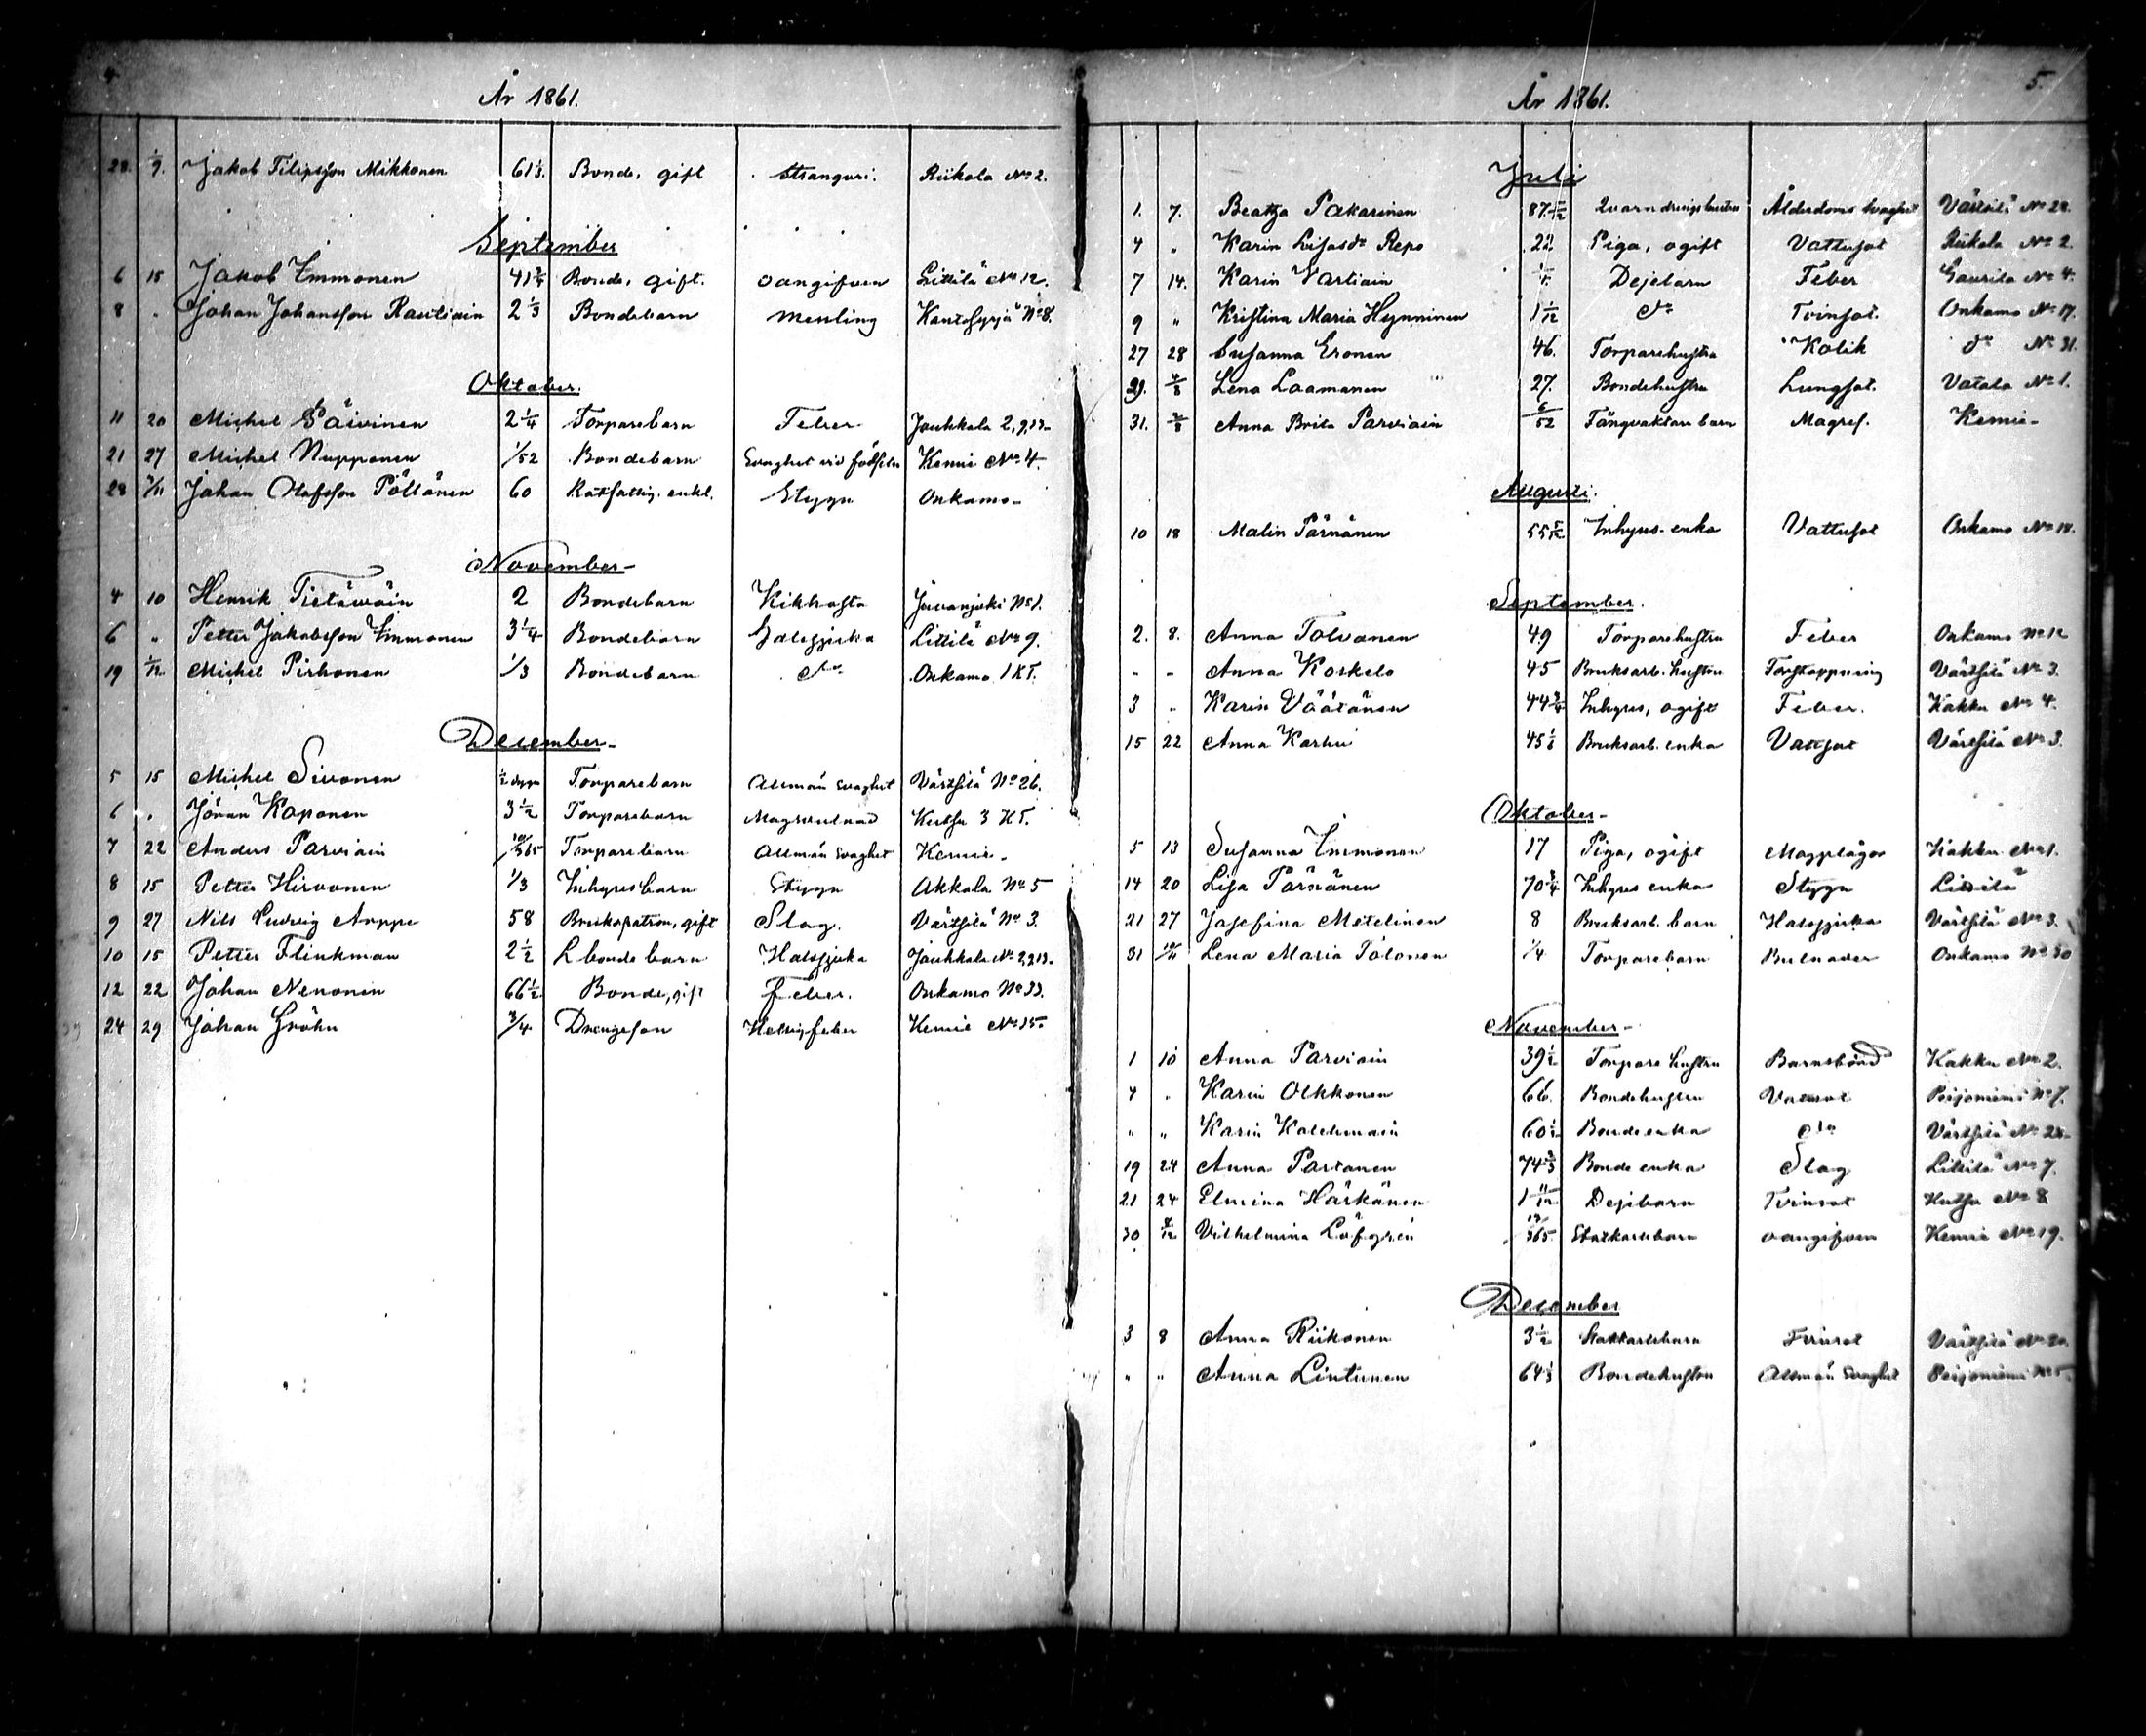 4
År 1861.
28. 1/9. Jakob Filipsson Mikkonen 61 1/3. Bonde, gift Stranguri. Riikola No 2.
September
6 15 Jakob Immonen 41 3/4 Bonde, gift. oangifven Littilä No 12.
8 " Johan Johansson Rautiain 2 1/3 Bondebarn Messling Kantosyrjä No 8.
Oktober.
11 20 Michel Päivinen 2 1/4 Torparebarn Feber Jouhkola 2,9,13.
21 27 Michel Nupponen 1/52 Bondebarn Svaghet vid födseln Kemie No 4.
28 3/11 Johan Olofsson Pöllänen 60 Rotfattig. enkl. Stygn Onkamo
November
4 10 Henrik Tietäväin 2 Bondebarn Kikhosta Juvanjoki No 1.
6 " Petter Jakobsson Immonen 3 1/4 Bondebarn Halssjuka Littilä No 9.
19 1/12 Michel Pirhonen 1/3 Bondebarn do Onkamo 1 KT.
December
5 15 Michel Sivonen 1/2 dygn Torparebarn Allmän Svaghet Värtsilä No 26.
6 " Jöran Koponen 3 1/2 Torparebarn Magsvulnad Kutsu 3 KT.
7 22 Anders Parviain 10/365 Torparebarn Allmän Svaghet Kemie
8 15 Petter Hirvonen 1/3 Inhyresbarn Stygn Akkala No 5
9 27 Nils Ludvig Arppe 58 Brukspatron, gift Slag. Värtsilä No 3.
10 15 Petter Flinkman 2 1/2 L bonde barn Halssjuka Jouhkola No 2,9,13.
12 22 Johan Nenonen 66 1/2 Bonde, gift Feber. Onkamo No 33.
24 29 Johan Gröhn 3/4 Drängeson Hetsigfeber Kemie No 15.
5.
År 1861.
Juli
1. 7. Beata Pakarinen 87 Qvarndrängshustru Ålderdoms svaghet Värtsilä No 28.
4 " Karin Lisasdr Repo 22 Piga, ogift Vattusot Riikola No 2.
7 14. Karin Vartiain 1/4 Dejebarn Feber Saarila No 4.
9 " Kristina Maria Hynninen 1 1/12 do Tvinsot. Onkamo No 17.
27 28 Susanna Eronen 46. Torparehustru Kolik do No 31.
29. 4/8 Lena Laamanen 27. Bondehustru Lungsot. Vatala No 1.
31. Anna Brita Parviain 6/52 Fångvaktare barn Magref. Kemie
Augusti.
10 18 Malin Pärnänen 55 5/12 Inhyres-enka Vattusot Onkamo No 18.
September.
2. 8. Anna Tolvanen 49 Torparehustru Feber Onkamo No 12
" " Anna Koskelo 45 Bruksarb. hustru Värtsilä No 3.
3 " Karin Väätänen 44 3/4 Inhyres, ogift Feber. Kakku No 4.
15 22 Anna Karhu 45 1/6 Bruksarb. enka Vattsot Värtsilä No 3.
Oktober
5 13 Susanna Immonen 17 Piga, ogift Magplågor Kakku No 1.
14 20 Lisa Pärnänen 70 3/4 Inhyres enka Stygn Littilä
21 27 Josefina Metelinen 8 Bruksarb. barn Halssjuka Värtsilä No 3.
31 10/11 Lena Maria Tolonen 1/4 Torparebarn Bulnader Onkamo No 30
November
1 10 Anna Parviain 39 1/2 Torpare hustru Barnsbörd Kakku No 2.
4 " Karin Olkkonen 66. Bondehustru Vattusot Peijoniemi No 7.
" " Karin Kolehmain 60 1/2 Bonde enka do Värtsilä No 28.
19 24 Anna Partanen 74 2/3 Bonde enka Slag Littilä No 7.
21 24 Elmina Härkänen 1 11/12 Dejebarn Tvinsot Kutsu No 8
30 8/12 Vilhelmina Löfgren 19/365 Statkarlsbarn oangifven Kemie No 19.
December
3 8 Anna Riikonen 3 1/2 Statkarlsbarn Tvinsot Värtsilä No 20.
" " Anna Lintunen 64 1/3 Bondehustru Allmän Svaghet Peijoniemi No 5.